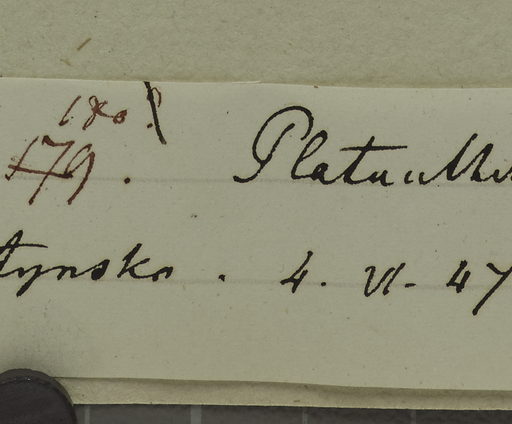 180.
179. Platanthe
tynsko. 4. VI. 47